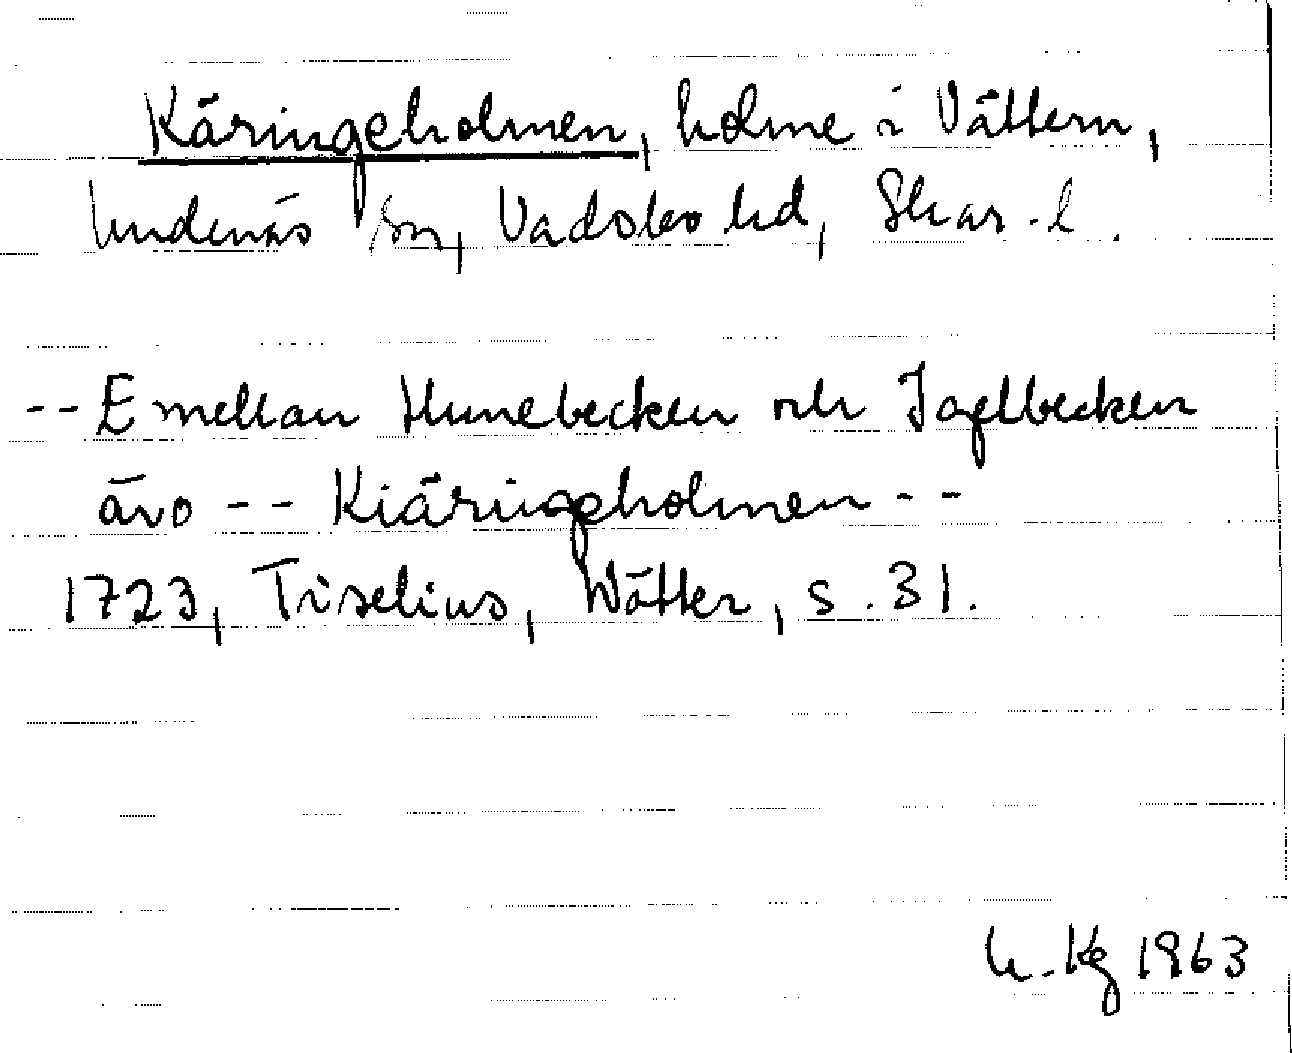 Käringeholmen, holme i Vättern,
Undenäs sn, Vadsbo hd, Skar. l.
-- Emellan Hunebecken och Jagelbecken
ävo -- Kiäringeholmen --
1723, Tiselius, Wätter, s. 31.
Kg 1963